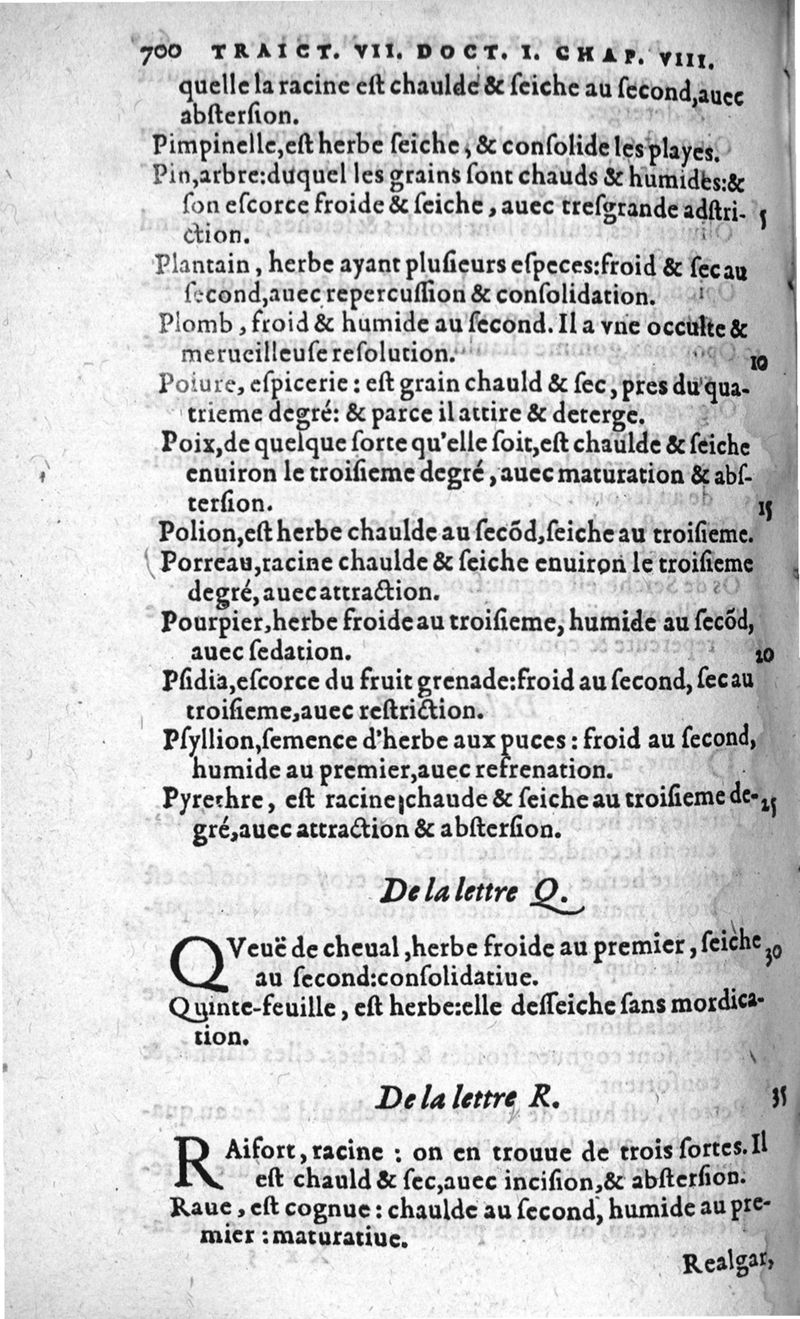 700 TRAICT. VII. DOCT. I. CHAP. VIII.
quelle la racine eſt chaulde & ſeiche au ſecond,auec
abſterſion.
Pimpinelle,eſt herbe ſeiche, & conſolide les playes.
Pin,arbre:duquel les grains ſont chauds & humides:&
ſon eſcorce froide & ſeiche, auec treſgrande adſtri- 5
ction.
Plantain, herbe ayant pluſieurs eſpeces:froid & ſec au
ſecond,auec repercuſſion & conſolidation.
Plomb, froid & humide au ſecond. Il a vne occulte &
merueilleuſe reſolution. 10
Poiure, eſpicerie : eſt grain chauld & ſec, pres du qua-
trieme degré: & parce il attire & deterge.
Poix,de quelque ſorte qu'elle ſoit,eſt chaulde & ſeiche
enuiron le troiſieme degré, auec maturation & abſ-
terſion. 15
Polion,eſt herbe chaulde au ſecõd,ſeiche au troiſieme.
Porreau,racine chaulde & ſeiche enuiron le troiſieme
degré, auec attraction.
Pourpier,herbe froide au troiſieme, humide au ſecõd,
auec ſedation. 20
Pſidia,eſcorce du fruit grenade:froid au ſecond, ſec au
troiſieme,auec reſtriction.
Pſyllion,ſemence d'herbe aux puces : froid au ſecond,
humide au premier,auec refrenation.
Pyrethre, eſt racine chaude & ſeiche au troiſieme de- 25
gré,auec attraction & abſterſion.
De la lettre Q.
QVeuë de cheual ,herbe froide au premier, ſeiche 30
au ſecond:conſolidatiue.
Quinte-feuille, eſt herbe:elle deſſeiche ſans mordica-
tion.
De la lettre R. 35
RAifort, racine : on en trouue de trois ſortes. Il
eſt chauld & ſec,auec inciſion,& abſterſion.
Raue, eſt cognue : chaulde au ſecond, humide au pre-
mier : maturatiue.
Realgar,